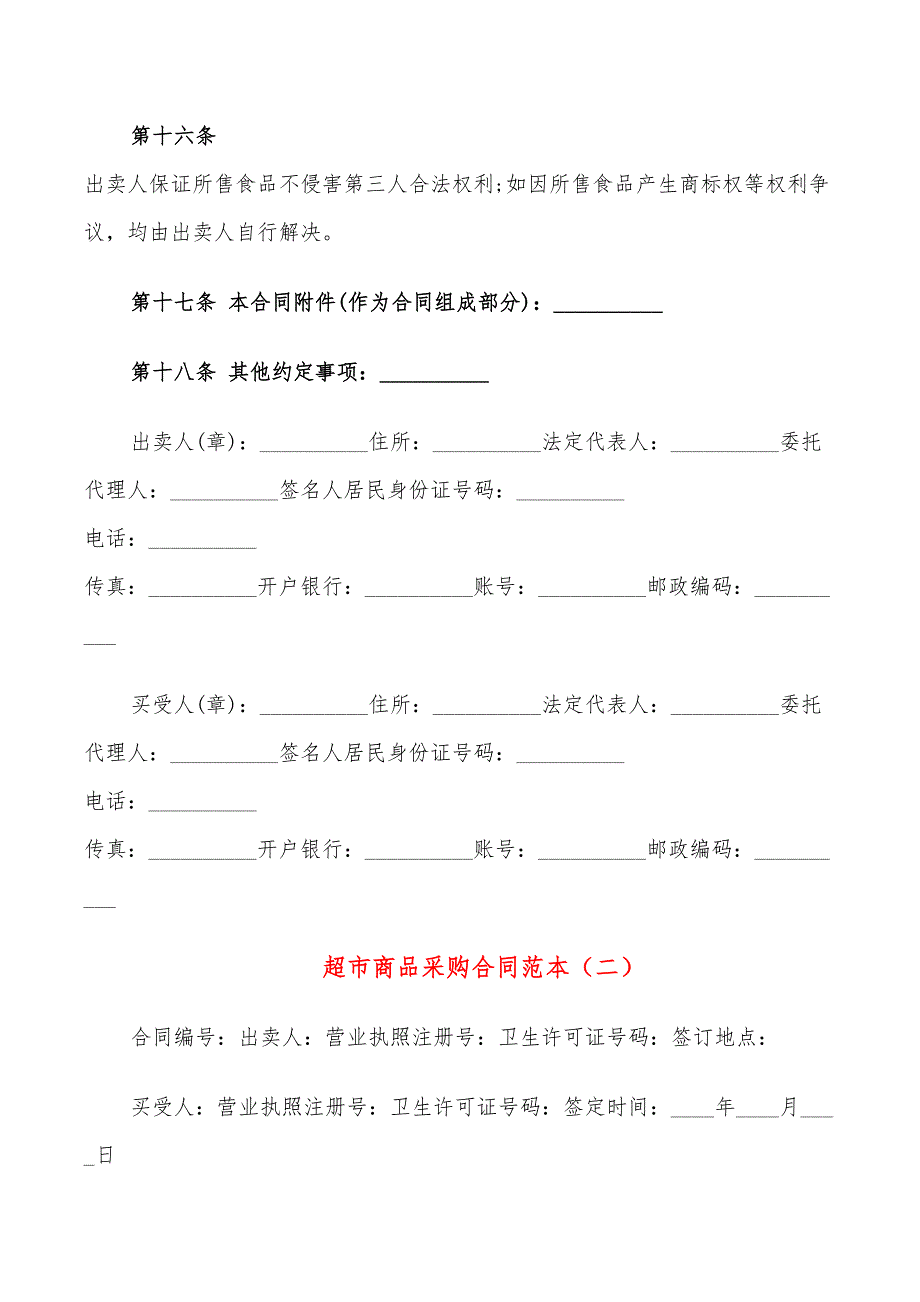 第十六条
出卖人保证所售食品不侵害第三人合法权利;如因所售食品产生商标权等权利争
议，均由出卖人自行解决。
第十七条 本合同附件(作为合同组成部分)：__________
第十八条 其他约定事项：__________
出卖人(章)：__________住所：__________法定代表人：__________委托
代理人：__________签名人居民身份证号码：__________
电话：__________
传真：__________开户银行：__________账号：__________邮政编码：_______
___
买受人(章)：__________住所：__________法定代表人：__________委托
代理人：__________签名人居民身份证号码：__________
电话：__________
传真：__________开户银行：__________账号：__________邮政编码：_______
___
超市商品采购合同范本（二）
合同编号：出卖人：营业执照注册号：卫生许可证号码：签订地点：
买受人：营业执照注册号：卫生许可证号码：签定时间：____年____月___
_日